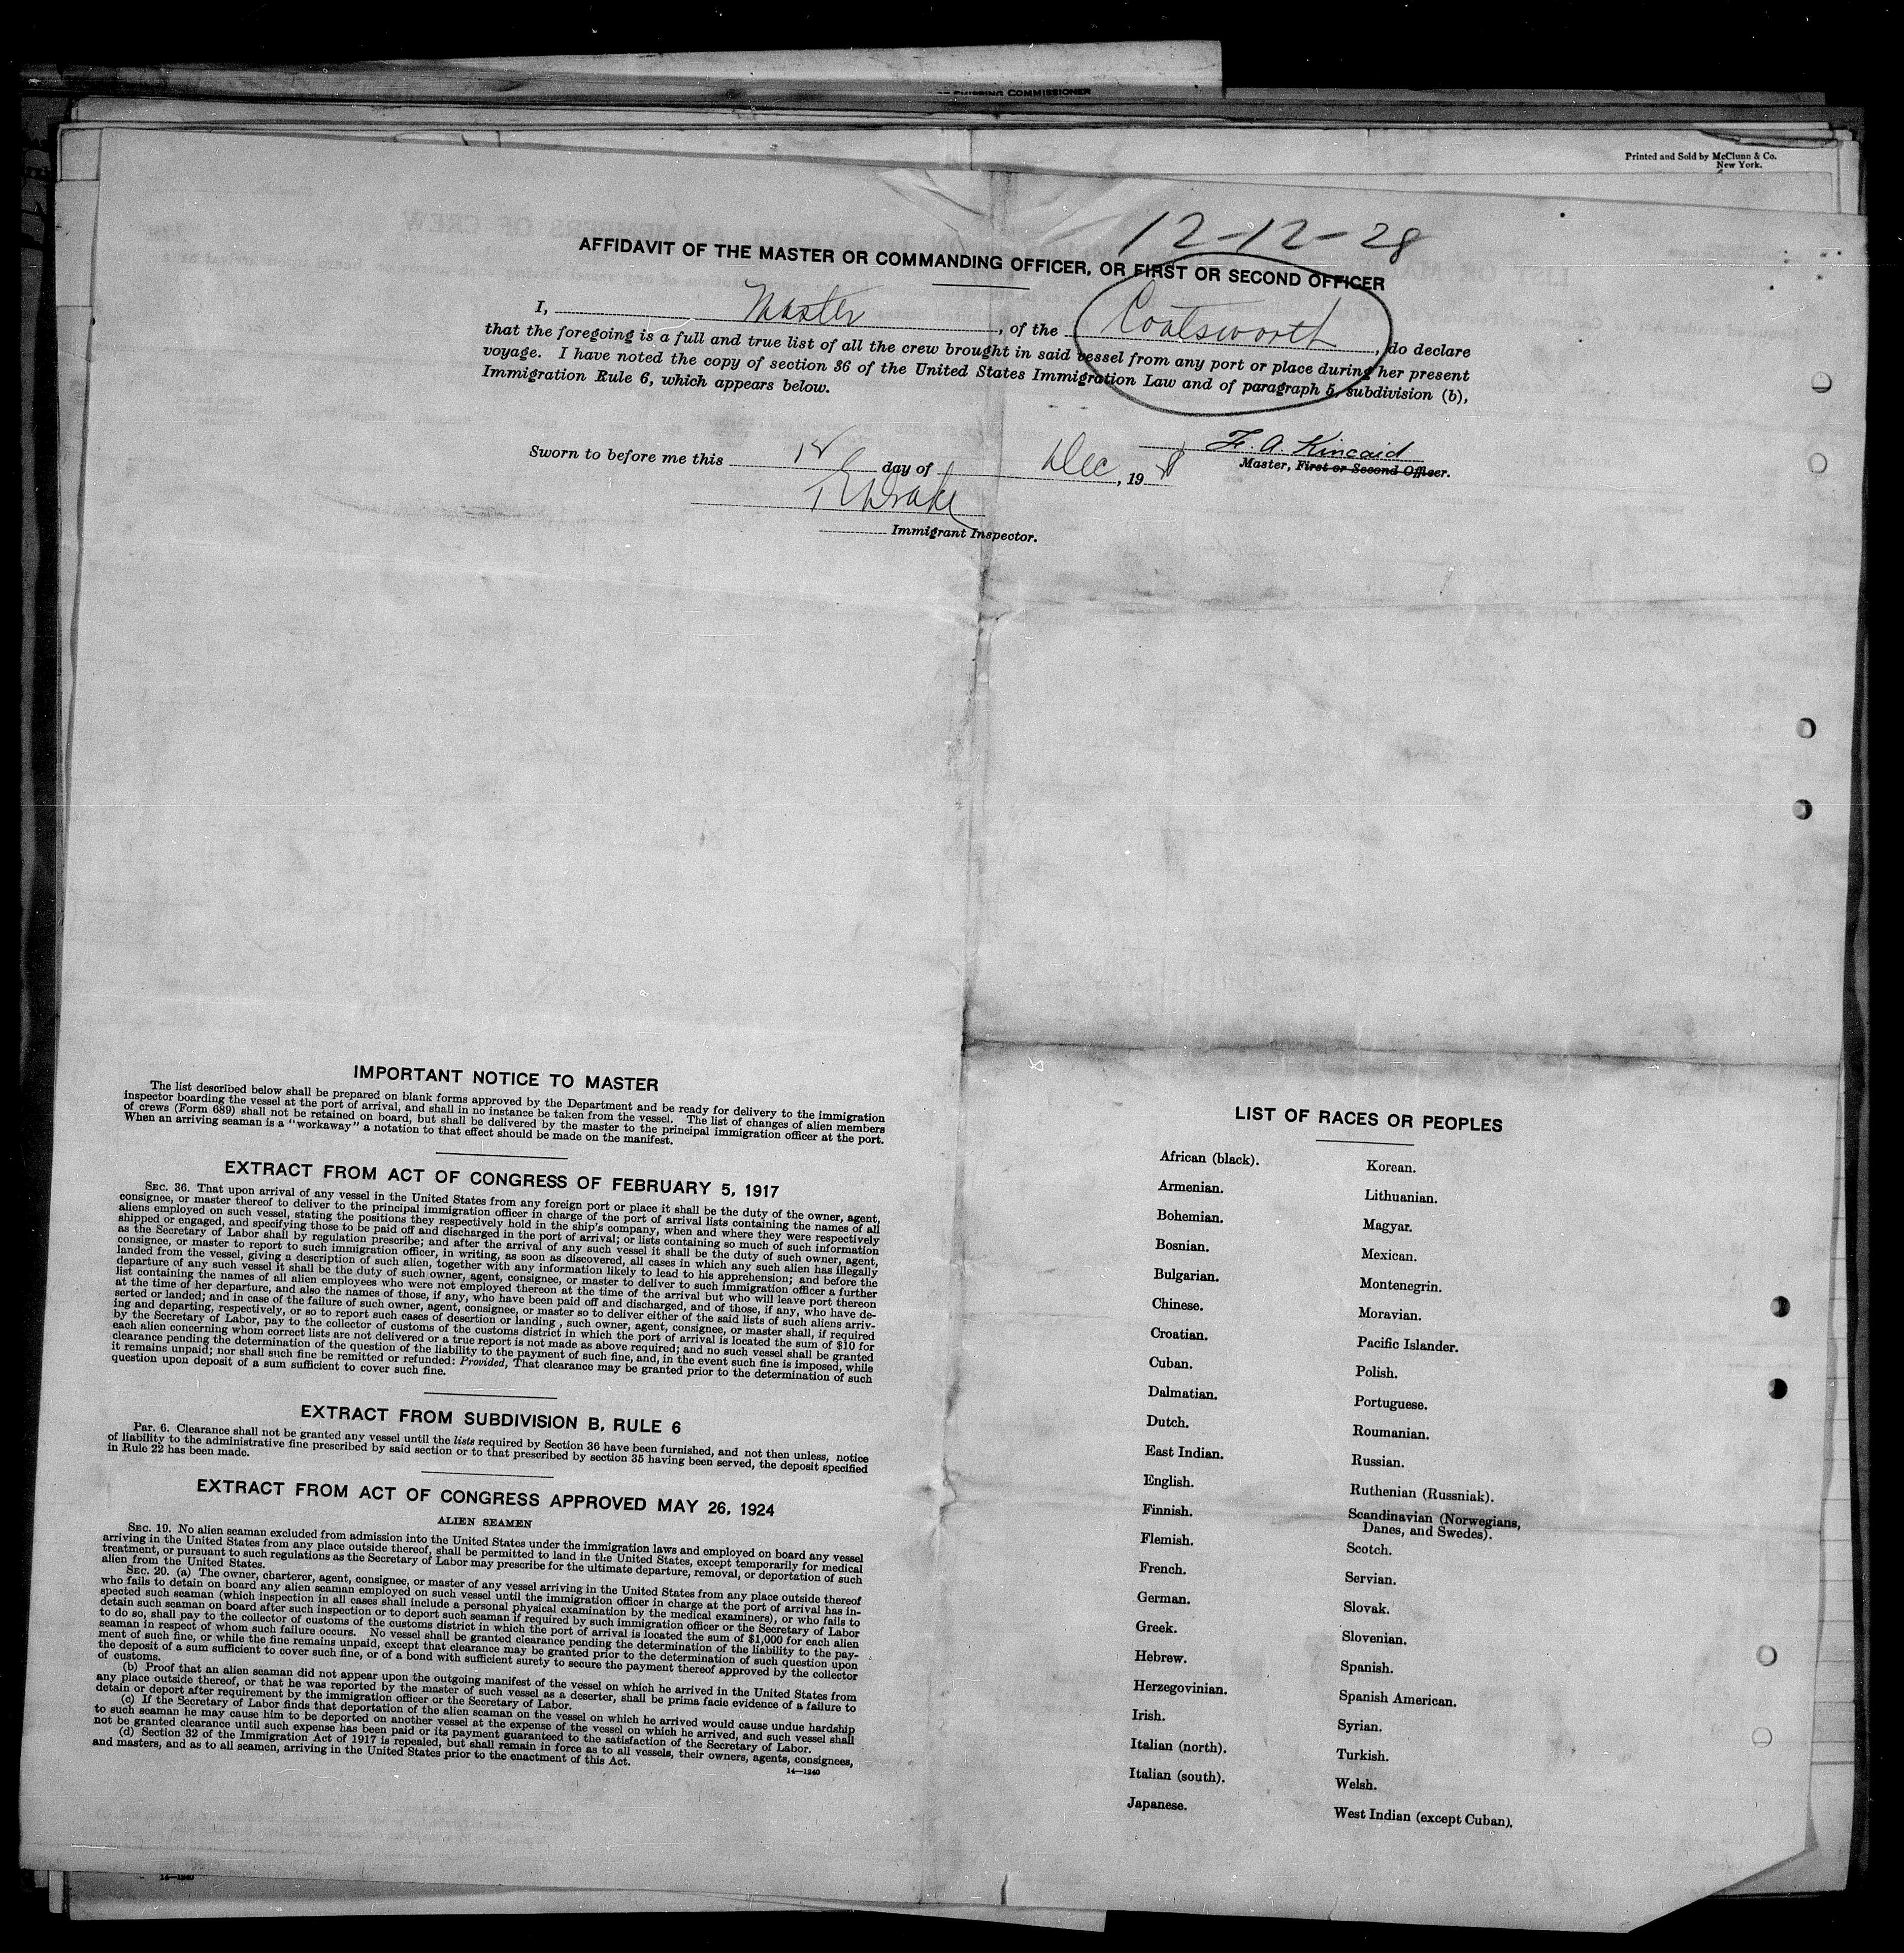 OF SHIPPING COMMISSIONER
Printed and Sold by McClunn & Co.
New York.
12-12-28
AFFIDAVIT OF THE MASTER OR COMMANDING OFFICER, OR FIRST OR SECOND OFFICER
I, Master, of the Coalsworth, do declare
that the foregoing is a full and true list of all the crew brought in said vessel from any port or place during her present
voyage. I have noted the copy of section 36 of the United States Immigration Law and of paragraph 5, subdivision (b),
Immigration Rule 6, which appears below.
F. A. Kincaid
Master, First or Second Officer.
Sworn to before me this 12 day of Dec, 19 8
Drake
Immigrant Inspector.
IMPORTANT NOTICE TO MASTER
The list described below shall be prepared on blank forms approved by the Department and be ready for delivery to the immigration
inspector boarding the vessel at the port of arrival, and shall in no instance be taken from the vessel. The list of changes of alien members
of crews (Form 689) shall not be retained on board, but shall be delivered by the master to the principal immigration officer at the port.
When an arriving seaman is a "workaway" a notation to that effect should be made on the manifest.
EXTRACT FROM ACT OF CONGRESS OF FEBRUARY 5, 1917
SEC. 36. That upon arrival of any vessel in the United States from any foreign port or place it shall be the duty of the owner, agent,
consignee, or master thereof to deliver to the principal immigration officer in charge of the port of arrival lists containing the names of all
aliens employed on such vessel, stating the positions they respectively hold in the ship's company, when and where they were respectively
shipped or engaged, and specifying those to be paid off and discharged in the port of arrival; or lists containing so much of such information
as the Secretary of Labor shall by regulation prescribe; and after the arrival of any such vessel it shall be the duty of such owner, agent,
consignee, or master to report to such immigration officer, in writing, as soon as discovered, all cases in which any such alien has illegally
landed from the vessel, giving a description of such alien, together with any information likely to lead to his apprehension; and before the
departure of any such vessel it shall be the duty of such owner, agent, consignee, or master to deliver to such immigration officer a further
list containing the names of all alien employees who were not employed thereon at the time of the arrival but who will leave port thereon
at the time of her departure, and also the names of those, if any, who have been paid off and discharged, and of those, if any, who have de-
serted or landed; and in case of the failure of such owner, agent, consignee, or master so to deliver either of the said lists of such aliens arriv-
ing and departing, respectively, or so to report such cases of desertion or landing, such owner, agent, consignee, or master shall, if required
by the Secretary of Labor, pay to the collector of customs of the customs district in which the port of arrival is located the sum of $10 for
each alien concerning whom correct lists are not delivered or a true report is not made as above required; and no such vessel shall be granted
clearance pending the determination of the question of the liability to the payment of such fine, and, in the event such fine is imposed, while
it remains unpaid; nor shall such fine be remitted or refunded: Provided, That clearance may be granted prior to the determination of such
question upon deposit of a sum sufficient to cover such fine.
EXTRACT FROM SUBDIVISION B, RULE 6
Par. 6. Clearance shall not be granted any vessel until the lists required by Section 36 have been furnished, and not then unless, notice
of liability to the administrative fine prescribed by said section or to that prescribed by section 35 having been served, the deposit specified
in Rule 22 has been made.
EXTRACT FROM ACT OF CONGRESS APPROVED MAY 26, 1924
ALIEN SEAMEN
SEC. 19. No alien seaman excluded from admission into the United States under the immigration laws and employed on board any vessel
arriving in the United States from any place outside thereof, shall be permitted to land in the United States, except temporarily for medical
treatment, or pursuant to such regulations as the Secretary of Labor may prescribe for the ultimate departure, removal, or deportation of such
alien from the United States.
SEC. 20. (a) The owner, charterer, agent, consignee, or master of any vessel arriving in the United States from any place outside thereof
who fails to detain on board any alien seaman employed on such vessel until the immigration officer in charge at the port of arrival has in-
spected such seaman (which inspection in all cases shall include a personal physical examination by the medical examiners), or who fails to
detain such seaman on board after such inspection or to deport such seaman if required by such immigration officer or the Secretary of Labor
to do so, shall pay to the collector of customs of the customs district in which the port of arrival is located the sum of $1,000 for each alien
seaman in respect of whom such failure occurs. No vessel shall be granted clearance pending the determination of the liability to the pay-
ment of such fine, or while the fine remains unpaid, except that clearance may be granted prior to the determination of such question upon
the deposit of a sum sufficient to cover such fine, or of a bond with sufficient surety to secure the payment thereof approved by the collector
of customs.
(b) Proof that an alien seaman did not appear upon the outgoing manifest of the vessel on which he arrived in the United States from
any place outside thereof, or that he was reported by the master of such vessel as a deserter, shall be prima facie evidence of a failure to
detain or deport after requirement by the immigration officer or the Secretary of Labor.
(c) If the Secretary of Labor finds that deportation of the alien seaman on the vessel on which he arrived would cause undue hardship
to such seaman he may cause him to be deported on another vessel at the expense of the vessel on which he arrived, and such vessel shall
not be granted clearance until such expense has been paid or its payment guaranteed to the satisfaction of the Secretary of Labor.
(d) Section 32 of the Immigration Act of 1917 is repealed, but shall remain in force as to all vessels, their owners, agents, consignees,
and masters, and as to all seamen, arriving in the United States prior to the enactment of this Act.
14—1240
LIST OF RACES OR PEOPLES
African (black).
Armenian.
Bohemian.
Bosnian.
Bulgarian.
Chinese.
Croatian.
Cuban.
Dalmatian.
Dutch.
East Indian.
English.
Finnish.
Flemish.
French.
German.
Greek.
Hebrew.
Herzegovinian.
Irish.
Italian (north).
Italian (south).
Japanese.
Korean.
Lithuanian.
Magyar.
Mexican.
Montenegrin.
Moravian.
Pacific Islander.
Polish.
Portuguese.
Roumanian.
Russian.
Ruthenian (Russniak).
Scandinavian (Norwegians,
Danes, and Swedes).
Scotch.
Servian.
Slovak.
Slovenian.
Spanish.
Spanish American.
Syrian.
Turkish.
Welsh.
West Indian (except Cuban).
14—1240